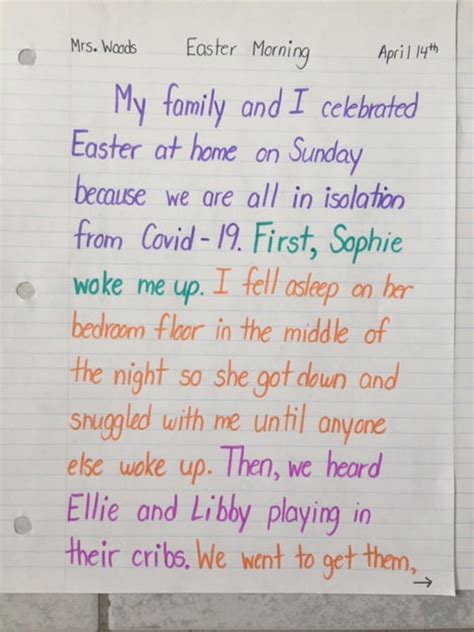 Mrs. Woods Easter Morning April 14th
My family and I celebrated
Easter at home on Sunday
because we are all in isolation
from Covid-19. First, Sophie
woke me up. I fell asleep on her
bedroom floor in the middle of
the night so she got down and
snuggled with me until anyone
else woke up. Then, we heard
Ellie and Libby playing in
their cribs. We went to get them,
→